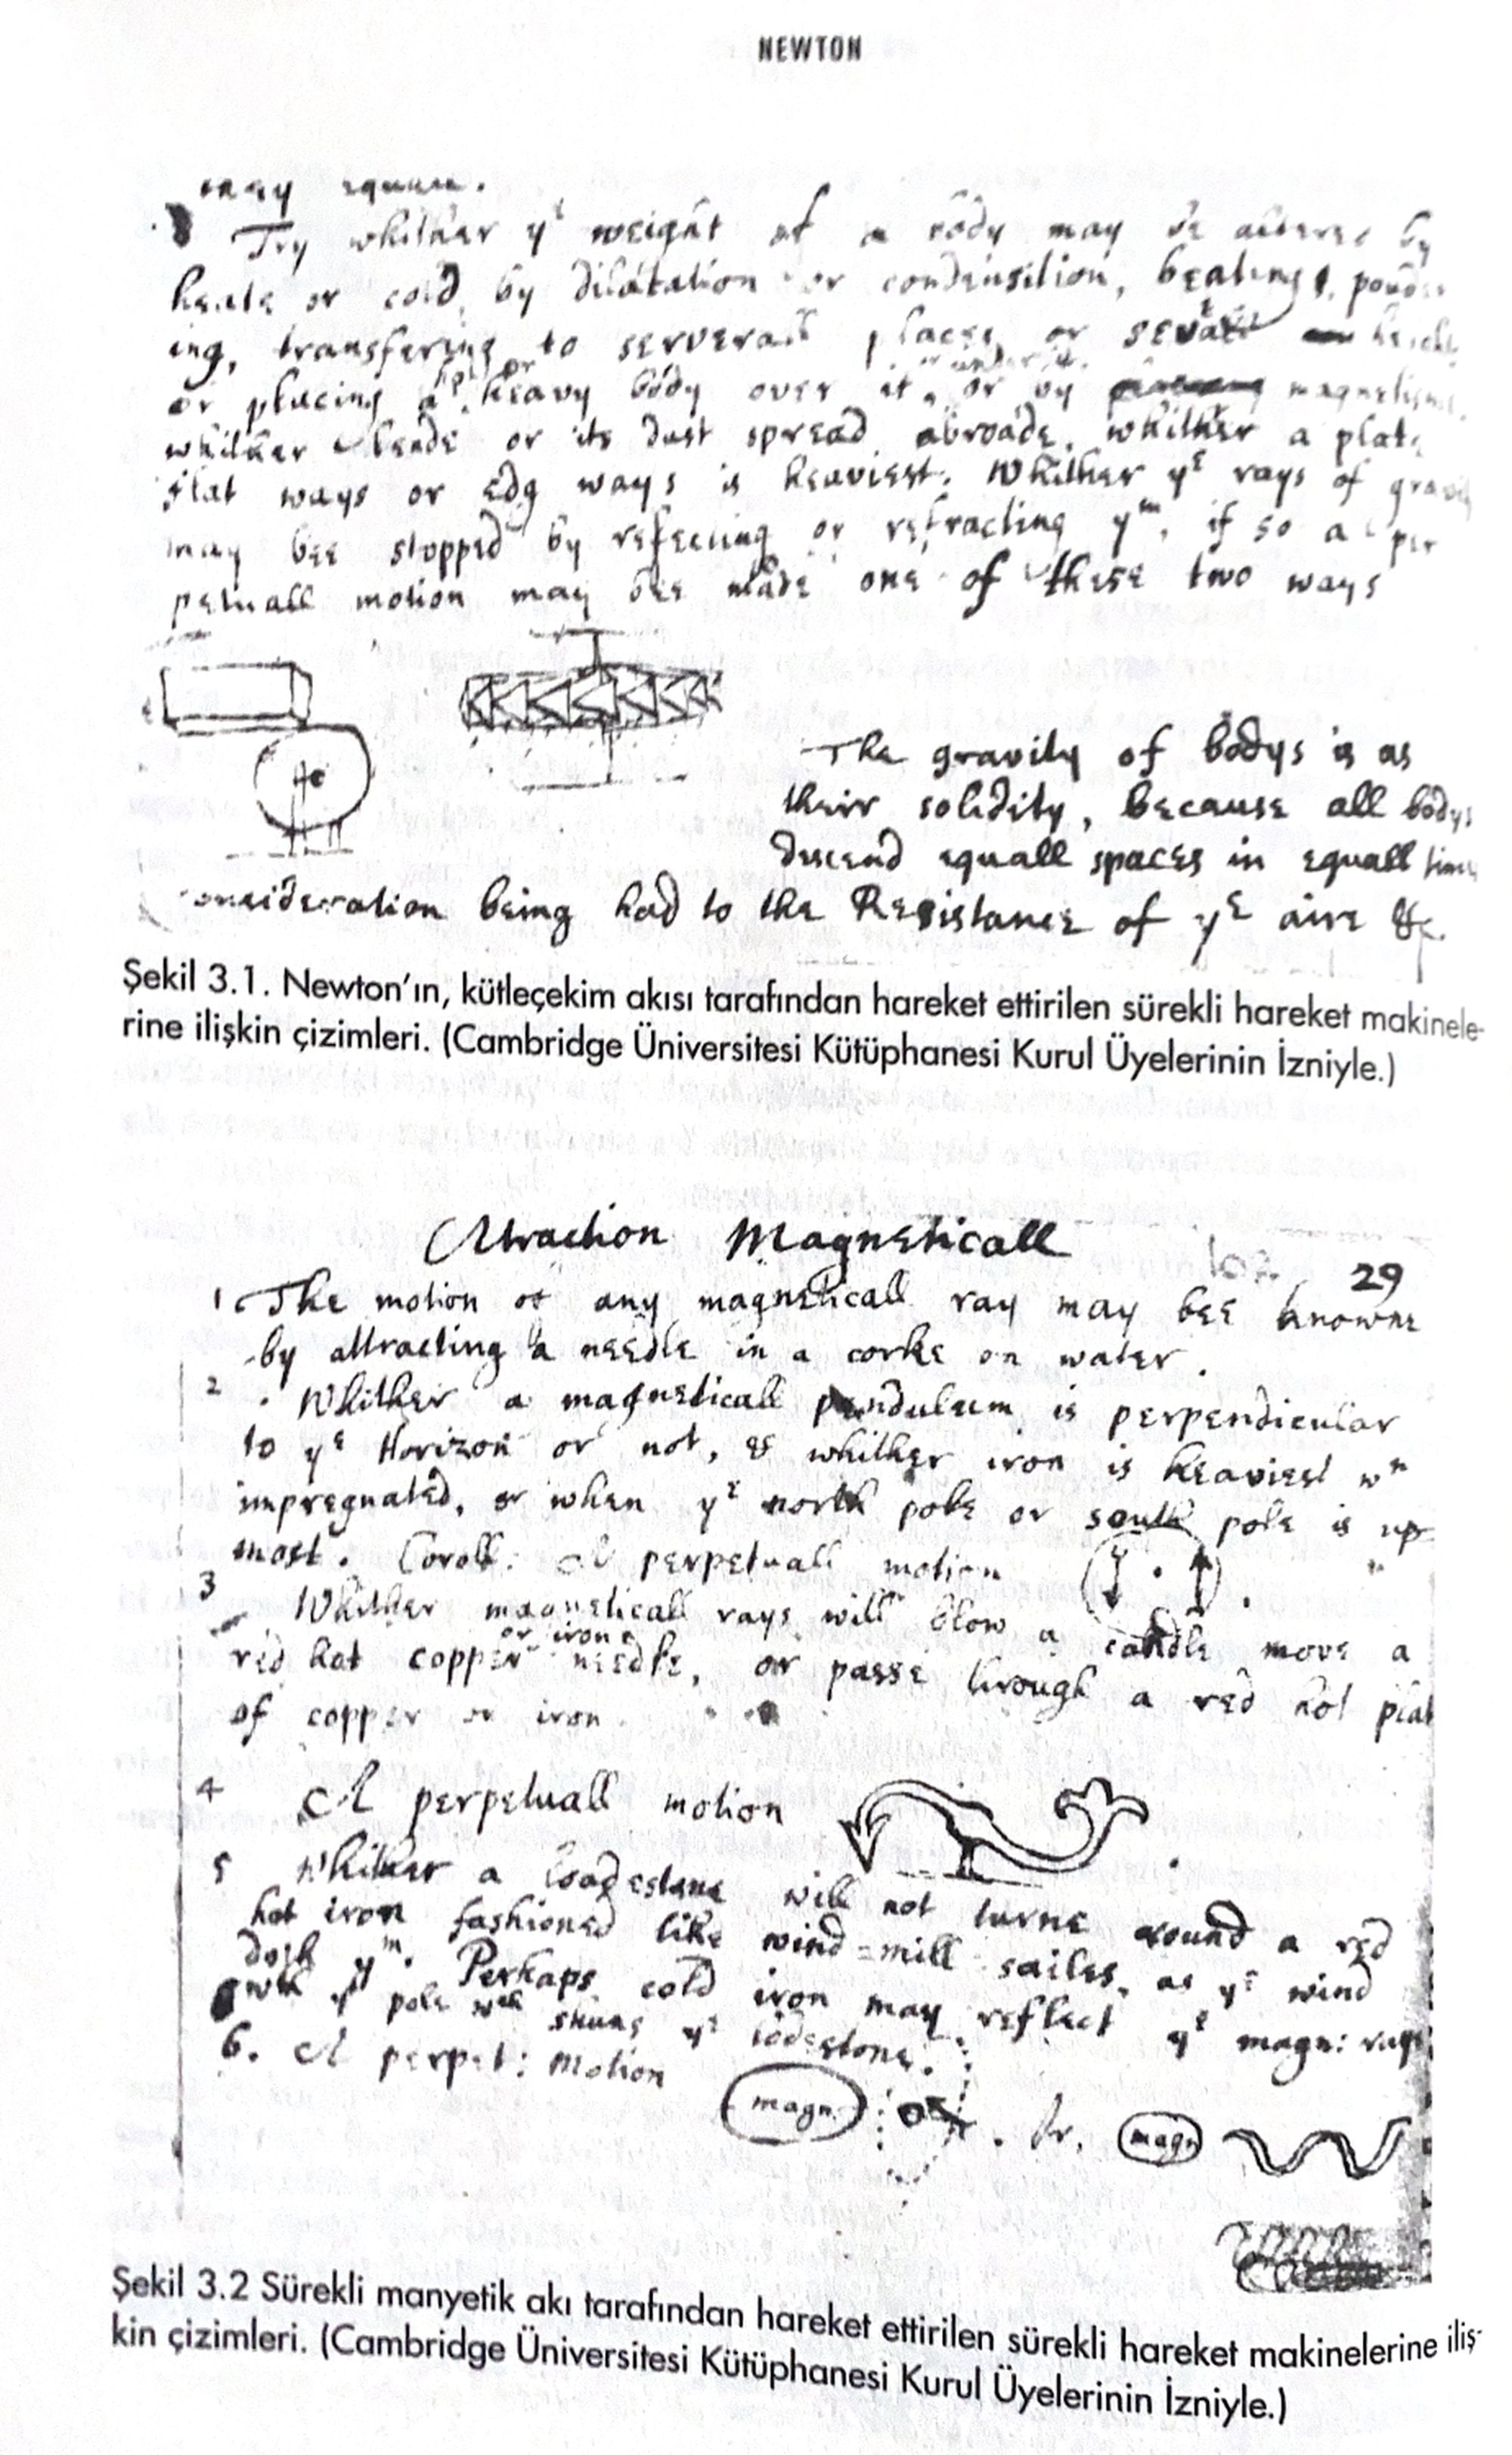 NEWTON
may
Try whither yᵉ weight of a body may be altered by
heate or cold, by dilatation or condensation, beating, powder
ing, transfering to serverall places or
or placing a heavy body over it, or by magnetisme.
or under it.
whither leade or its dust spread abroade, whither a plate
flat ways or edg ways is heaviest. Whither yᵉ rays of gravity
may bee stopped by reflecting or refracting yᵐ, if so a per
petuall motion may bee made one of these two ways
The gravity of bodys is as
their solidity, because all bodys
descend equall spaces in equall times
consideration being had to the Resistance of yᵉ aire &c.
Şekil 3.1. Newton'ın, kütleçekim akısı tarafından hareket ettirilen sürekli hareket makinele-
rine ilişkin çizimleri. (Cambridge Üniversitesi Kütüphanesi Kurul Üyelerinin İzniyle.)
Attraction Magneticall
102 29
1 The motion of any magneticall ray may bee knowne
by attracting a needle in a corke on water.
2 Whither a magneticall pendulum is perpendicular
to yᵉ Horizon or not, & whither iron is heaviest wⁿ
impregnated, or when yᵉ north pole or south pole is up
most. Coroll: A perpetuall motion
3 Whither magneticall rays will blow a candle move a
or iron
red hot copper needle, or passe through a red hot plate
of copper or iron.
4 A perpetuall motion
5 Whither a loadestone will not turne around a red
hot iron fashioned like wind=mill sailes, as yᵉ wind
doth yᵐ. Perhaps cold iron may reflect yᵉ magn: rays
wth yᵗ pole wᶜʰ shuns yᵉ lodestone.
6. A perpet: motion
magn. Or, magn
Şekil 3.2 Sürekli manyetik akı tarafından hareket ettirilen sürekli hareket makinelerine iliş-
kin çizimleri. (Cambridge Üniversitesi Kütüphanesi Kurul Üyelerinin İzniyle.)